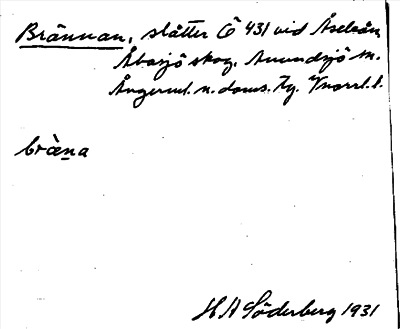 Brännan, slåtter Ö 431 vid Åseleån
Åbosjö skog. Anundsjö sn.
Ångerml. n. doms. Tg. Vnorrl. l.
bræ̀n̲a
H A Söderberg 1931